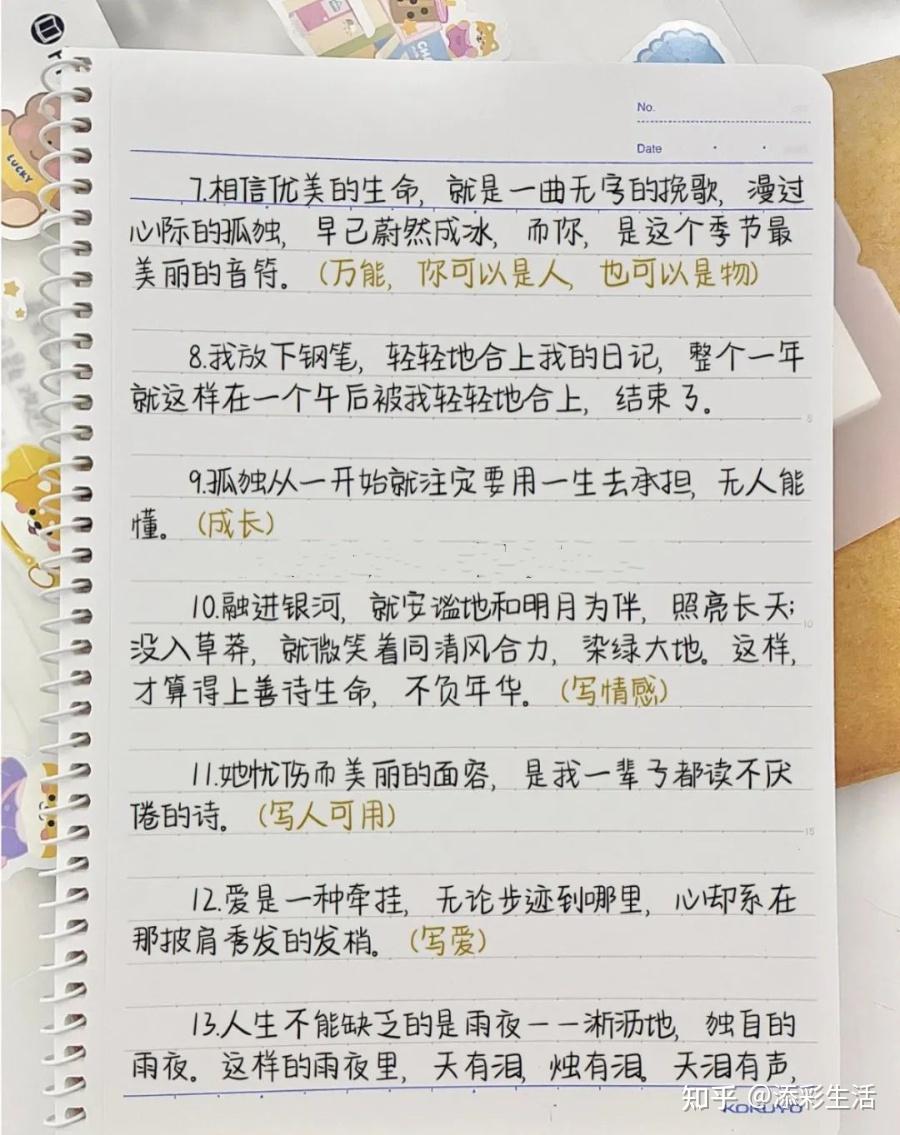 No.
Date
7.相信优美的生命，就是一曲无字的挽歌，漫过
心际的孤独，早已蔚然成冰，而你，是这个季节最
美丽的音符。（万能，你可以是人，也可以是物）
8.我放下钢笔，轻轻地合上我的日记，整个一年
就这样在一个午后被我轻轻地合上，结束了。
5
9.孤独从一开始就注定要用一生去承担，无人能
懂。（成长）
10.融进银河，就安谧地和明月为伴，照亮长天；
10
没入草莽，就微笑着同清风合力，染绿大地。这样，
才算得上善待生命，不负年华。（写情感）
11.她忧伤而美丽的面容，是我一辈子都读不厌
倦的诗。（写人可用）
15
12.爱是一种牵挂，无论步迹到哪里，心却系在
那披肩秀发的发梢。（写爱）
13.人生不能缺乏的是雨夜——淅沥地，独自的
雨夜。这样的雨夜里，天有泪，烛有泪。天泪有声，
KOKUYO
知乎 @添彩生活
LUCKY